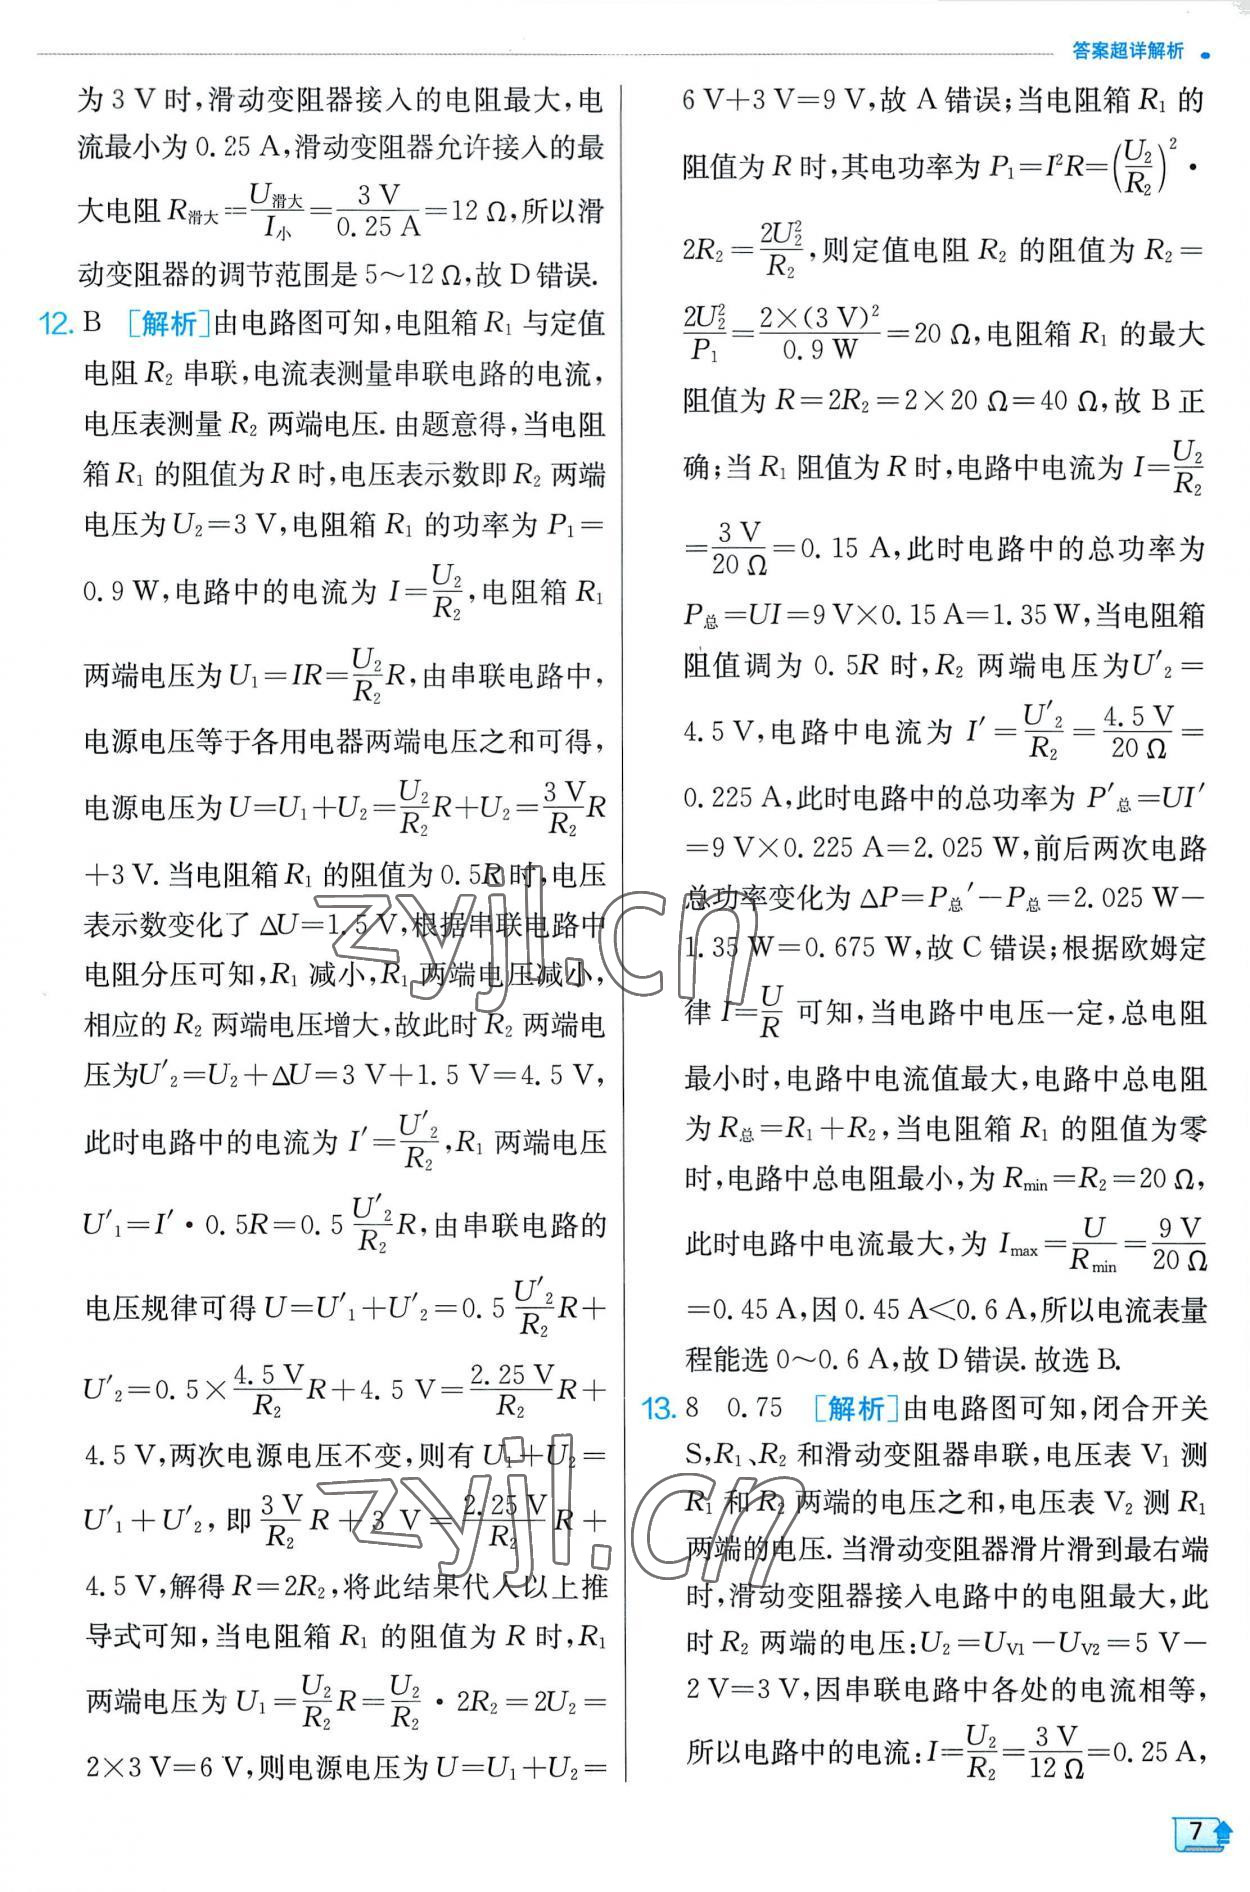 答案超详解析
为 3 V 时,滑动变阻器接入的电阻最大,电
流最小为 0.25 A,滑动变阻器允许接入的最
大电阻 R滑大=U滑大/I小=3 V/0.25 A=12 Ω,所以滑
动变阻器的调节范围是 5~12 Ω,故 D 错误.
12. B [解析]由电路图可知,电阻箱 R₁ 与定值
电阻 R₂ 串联,电流表测量串联电路的电流,
电压表测量 R₂ 两端电压. 由题意得,当电阻
箱 R₁ 的阻值为 R 时,电压表示数即 R₂ 两端
电压为 U₂=3 V,电阻箱 R₁ 的功率为 P₁=
0.9 W,电路中的电流为 I=U₂/R₂,电阻箱 R₁
两端电压为 U₁=IR=U₂/R₂ R,由串联电路中,
电源电压等于各用电器两端电压之和可得,
电源电压为 U=U₁+U₂=U₂/R₂ R+U₂=3 V/R₂ R
+3 V. 当电阻箱 R₁ 的阻值为 0.5R 时,电压
表示数变化了 ΔU=1.5 V,根据串联电路中
电阻分压可知,R₁ 减小,R₁ 两端电压减小,
相应的 R₂ 两端电压增大,故此时 R₂ 两端电
压为U′₂=U₂+ΔU=3 V+1.5 V=4.5 V,
此时电路中的电流为 I′=U′₂/R₂,R₁ 两端电压
U′₁=I′·0.5R=0.5 U′₂/R₂ R,由串联电路的
电压规律可得 U=U′₁+U′₂=0.5 U′₂/R₂ R+
U′₂=0.5×4.5 V/R₂ R+4.5 V=2.25 V/R₂ R+
4.5 V,两次电源电压不变,则有 U₁+U₂=
U′₁+U′₂,即 3 V/R₂ R+3 V=2.25 V/R₂ R+
4.5 V,解得 R=2R₂,将此结果代入以上推
导式可知,当电阻箱 R₁ 的阻值为 R 时,R₁
两端电压为 U₁=U₂/R₂ R=U₂/R₂·2R₂=2U₂=
2×3 V=6 V,则电源电压为 U=U₁+U₂=
6 V+3 V=9 V,故 A 错误;当电阻箱 R₁ 的
阻值为 R 时,其电功率为 P₁=I²R=(U₂/R₂)²·
2R₂=2U₂²/R₂,则定值电阻 R₂ 的阻值为 R₂=
2U₂²/P₁=2×(3 V)²/0.9 W=20 Ω,电阻箱 R₁ 的最大
阻值为 R=2R₂=2×20 Ω=40 Ω,故 B 正
确;当 R₁ 阻值为 R 时,电路中电流为 I=U₂/R₂
=3 V/20 Ω=0.15 A,此时电路中的总功率为
P总=UI=9 V×0.15 A=1.35 W,当电阻箱
阻值调为 0.5R 时,R₂ 两端电压为U′₂=
4.5 V,电路中电流为 I′=U′₂/R₂=4.5 V/20 Ω=
0.225 A,此时电路中的总功率为 P′总=UI′
=9 V×0.225 A=2.025 W,前后两次电路
总功率变化为 ΔP=P总′-P总=2.025 W-
1.35 W=0.675 W,故 C 错误;根据欧姆定
律 I=U/R 可知,当电路中电压一定,总电阻
最小时,电路中电流值最大,电路中总电阻
为 R总=R₁+R₂,当电阻箱 R₁ 的阻值为零
时,电路中总电阻最小,为 Rmin=R₂=20 Ω,
此时电路中电流最大,为 Imax=U/Rmin=9 V/20 Ω
=0.45 A,因 0.45 A<0.6 A,所以电流表量
程能选 0~0.6 A,故 D 错误. 故选 B.
13. 8 0.75 [解析]由电路图可知,闭合开关
S,R₁、R₂ 和滑动变阻器串联,电压表 V₁ 测
R₁ 和 R₂ 两端的电压之和,电压表 V₂ 测 R₁
两端的电压. 当滑动变阻器滑片滑到最右端
时,滑动变阻器接入电路中的电阻最大,此
时 R₂ 两端的电压:U₂=UV1-UV2=5 V-
2 V=3 V,因串联电路中各处的电流相等,
所以电路中的电流:I=U₂/R₂=3 V/12 Ω=0.25 A,
7
zyjl.cn
zyjl.cn